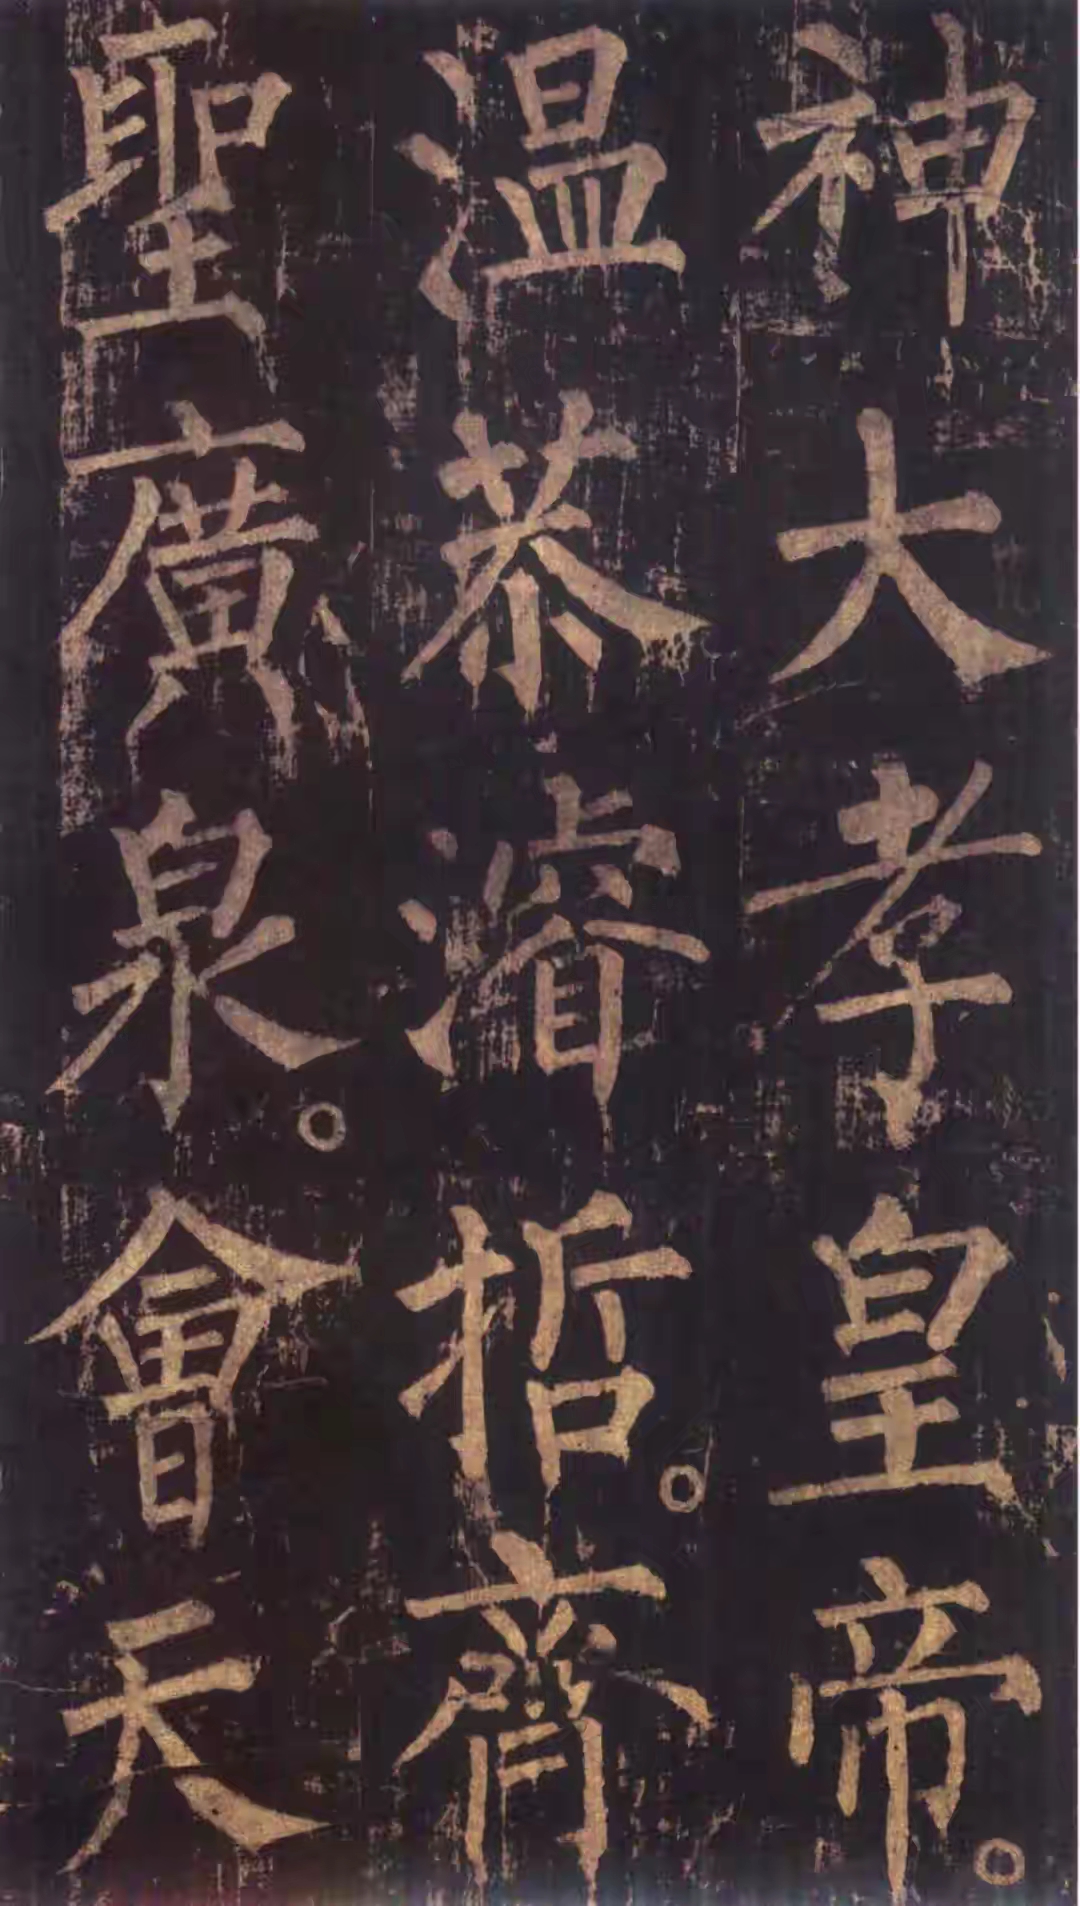 神大孝皇帝。
溫恭濬哲。齊
聖廣泉。會天